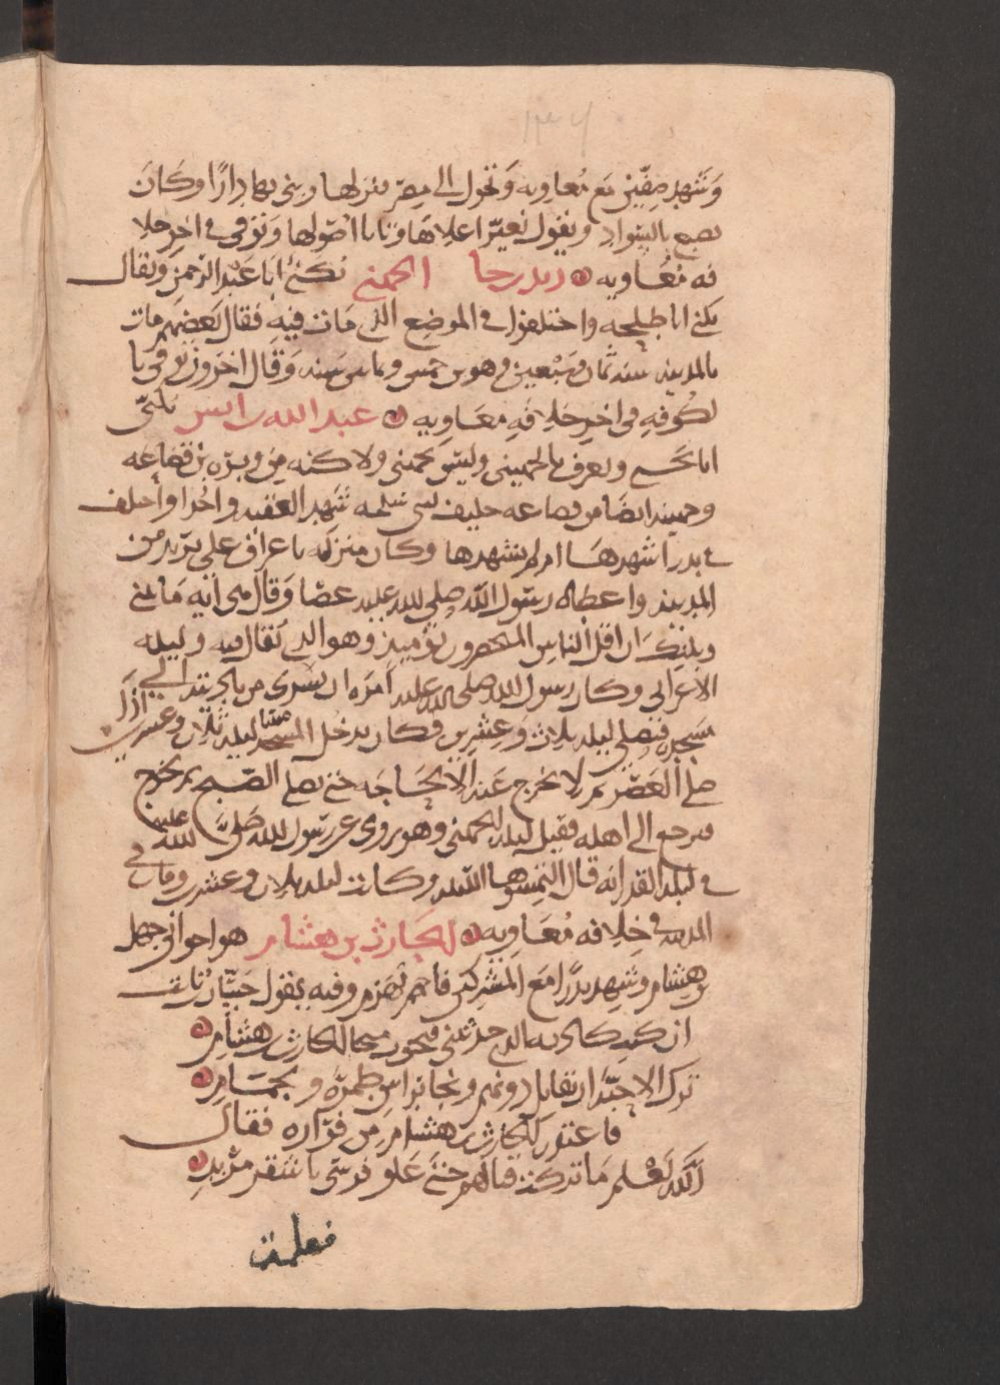 وشهد صفين مع معاويه وتحول الى مصر فنزلها وبنى بها دارا وكان
يصبع بالسواد ويقول نغير اعلاها وتابا اصولها وتوفى فى اخر خلا
فه معاويه زيد بن خا الجهني يكنى ابا عبد الرحمن ويقال
يكنى ابا طلحه واختلفوا فى الموضع الذى مات فيه فقال بعضهم مات
بالمدينه سنه ثمان وسبعين وهو بن خمس وثمانين سنه وقال اخرون توفى با
لكوفه فى اخر خلافه معاويه عبد الله بن انيس يكنى
ابا يحيى ويعرف بالجهيني وليس بجهني ولاكنه من وبره بن قضاعه
وجهينه ايضا من قضاعه حليف لبنى سلمه شهد العقبه واحدا واختلف
فى بدر اشهدها ام لم يشهدها وكان منزله باعراف على بريد من
المدينه واعطاه رسول الله صلى الله عليه عصا وقال هى ايه ما بيني
وبينك ان اقل الناس المتخصرون يوميذ وهو الذى يقال فيه وليله
الاعرابى وكان رسول الله صلى الله عليه امره ان يسرى من باديته الى
مسجده فيصلى ليله ثلاث وعشرين فكان يدخل المسجد ليله ثلاث وعشرين اذا
صلى العصر ثم لا يخرج عنه الا لحاجه حتى يصلى الصبح ثم يخرج
فيرجع الى اهله فقيل ليله الجهني وهو روى عن رسول الله صلى الله عليه
فى ليله القدر انه قال التمسوها الليله وكانت ليله ثلاث وعشرين ومات فى
المدينه فى خلافه معاويه الحارث بن هشام هو اخو ابى جهل
بن هشام وشهد بدرا مع المشركين فانهزم وفيه يقول حسان بن ثابت
ان كنت كاذبه الذى حدثتنى فنجوت منجا الحارث بن هشام
ترك الاحبه ان يقاتل دونهم ونجا براس طمره ولجام
فاعتذر الحارث بن هشام من فراره فقال
الله يعلم ما تركت قتالهم حتى علو فرسى باشقر مزبد
فعلمت